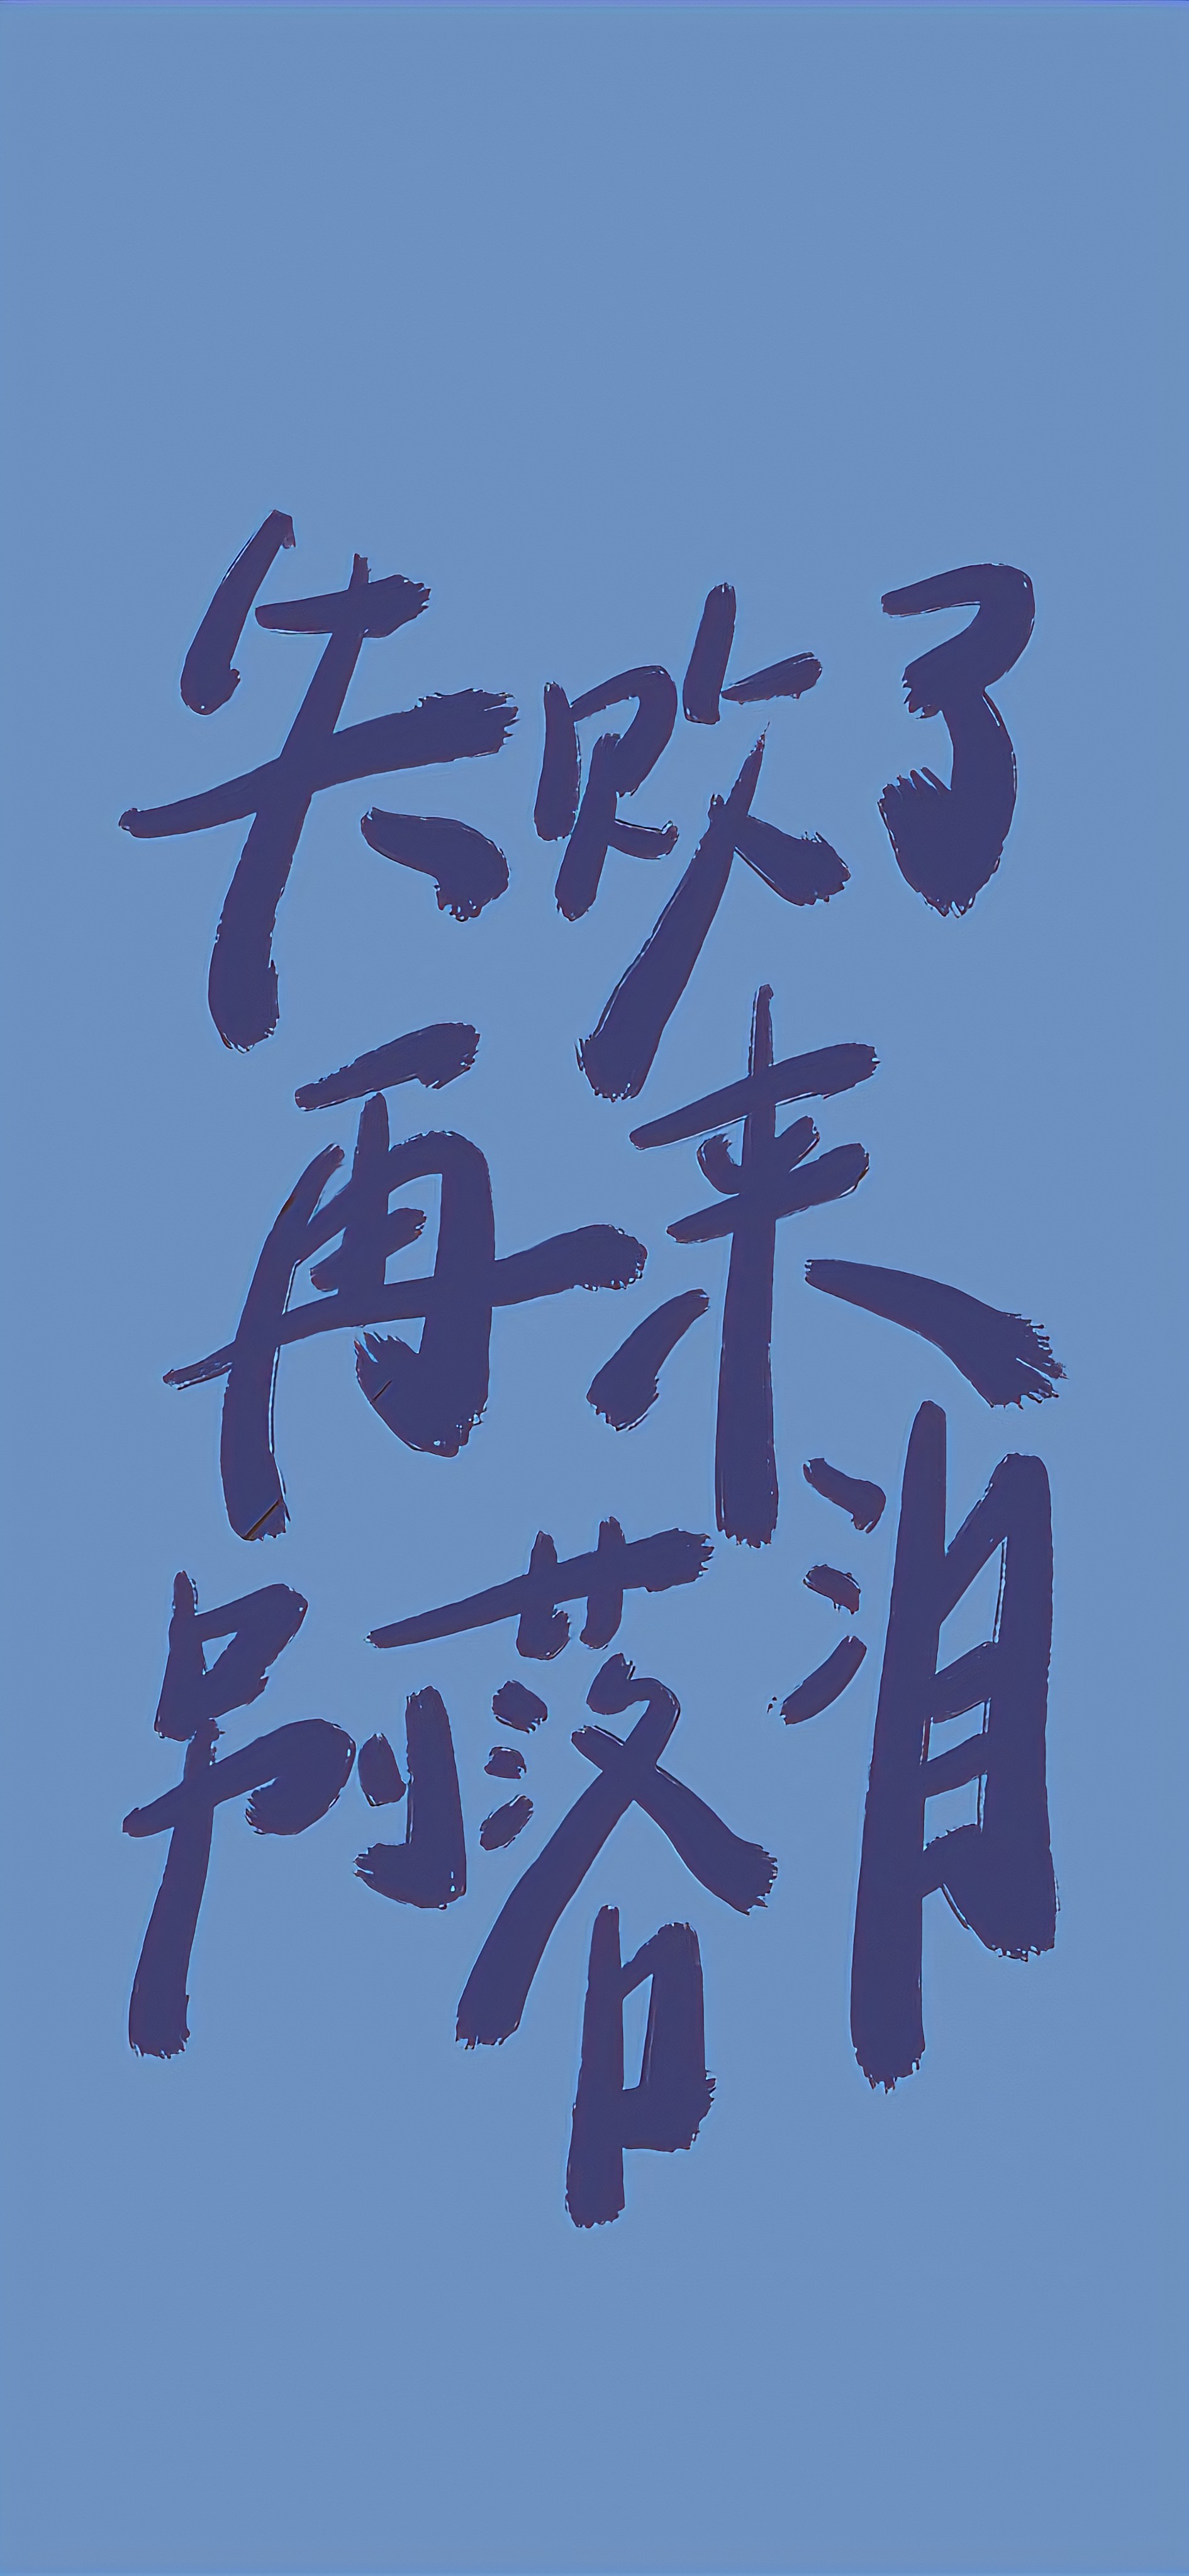 失败了
再来
别落泪